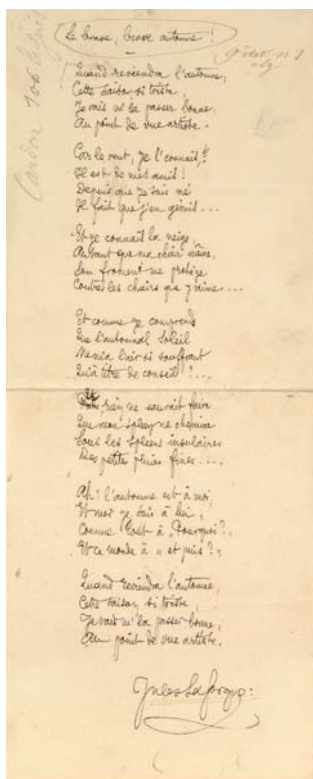 Le brave, brave automne !
Quand reviendra l'automne,
Cette saison si triste,
Je vais m'la passer bonne,
Au point de vue artiste.
Car le vent, je l'connais,
Il est de mes amis !
Depuis que je suis né
Il fait que j'en gémis ....
Et je connais la neige,
Autant que ma chair même,
Son froment me protège
Contre les chairs que j'aime ....
Et comme je comprends
Que l'automnal soleil
Ne m'a l'air si souffrant
Qu'à titre de conseil !...
rien ne saurait faire
Que mon spleen ne chemine
Sous les spleens insulaires
Des petites pluies fines ....
Ah! l'automne est à moi,
Et moi je suis à lui,
Comme tout à "Pourquoi?"
Et ce monde à "et puis ?"
Quand reviendra l'automne,
Cette saison si triste,
Je vais m'la passer bonne,
Au point de vue artiste.
Jules Laforgue